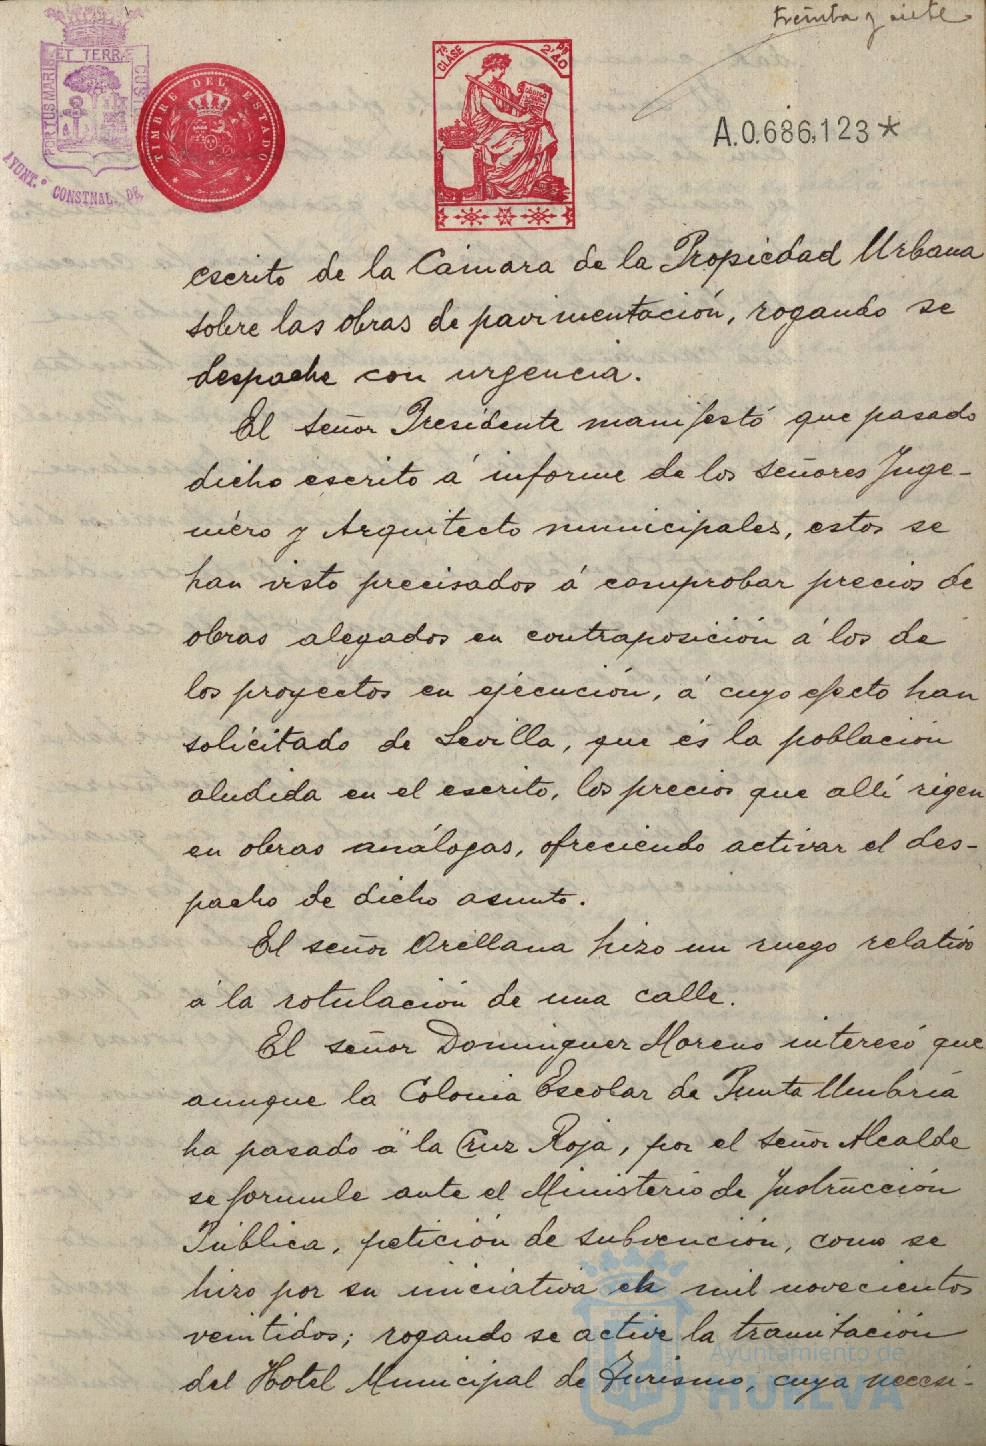 treinta y siete
PORTUS MARIS ET TERRÆ CUSTODIA
AYUNT.º CONSTNAL. DE
TIMBRE DEL ESTADO
7ª CLASE
2'40
A.0.686,123*
escrito de la Cámara de la Propiedad Urbana
sobre las obras de pavimentación, rogando se
despache con urgencia.
El señor Presidente manifestó que pasado
dicho escrito á informe de los señores Inge-
niero y Arquitecto municipales, estos se
han visto precisados á comprobar precios de
obras alegados en contraposición á los de
los proyectos en ejecución, á cuyo efecto han
solicitado de Sevilla, que és la población
aludida en el escrito, los precios que allí rigen
en obras análogas, ofreciendo activar el des-
pacho de dicho asunto.
El señor Orellana hizo un ruego relativo
á la rotulación de una calle.
El señor Dominguez Moreno interesó que
aunque la Colonia Escolar de Punta Umbría
ha pasado á la Cruz Roja, por el señor Alcalde
se formule ante el Ministerio de Instrucción
Pública, petición de subvención, como se
hizo por su iniciativa en mil novecientos
veintidos; rogando se active la tramitación
del Hotel Municipal de Turismo, cuya necesi-
Ayuntamiento de
HUELVA